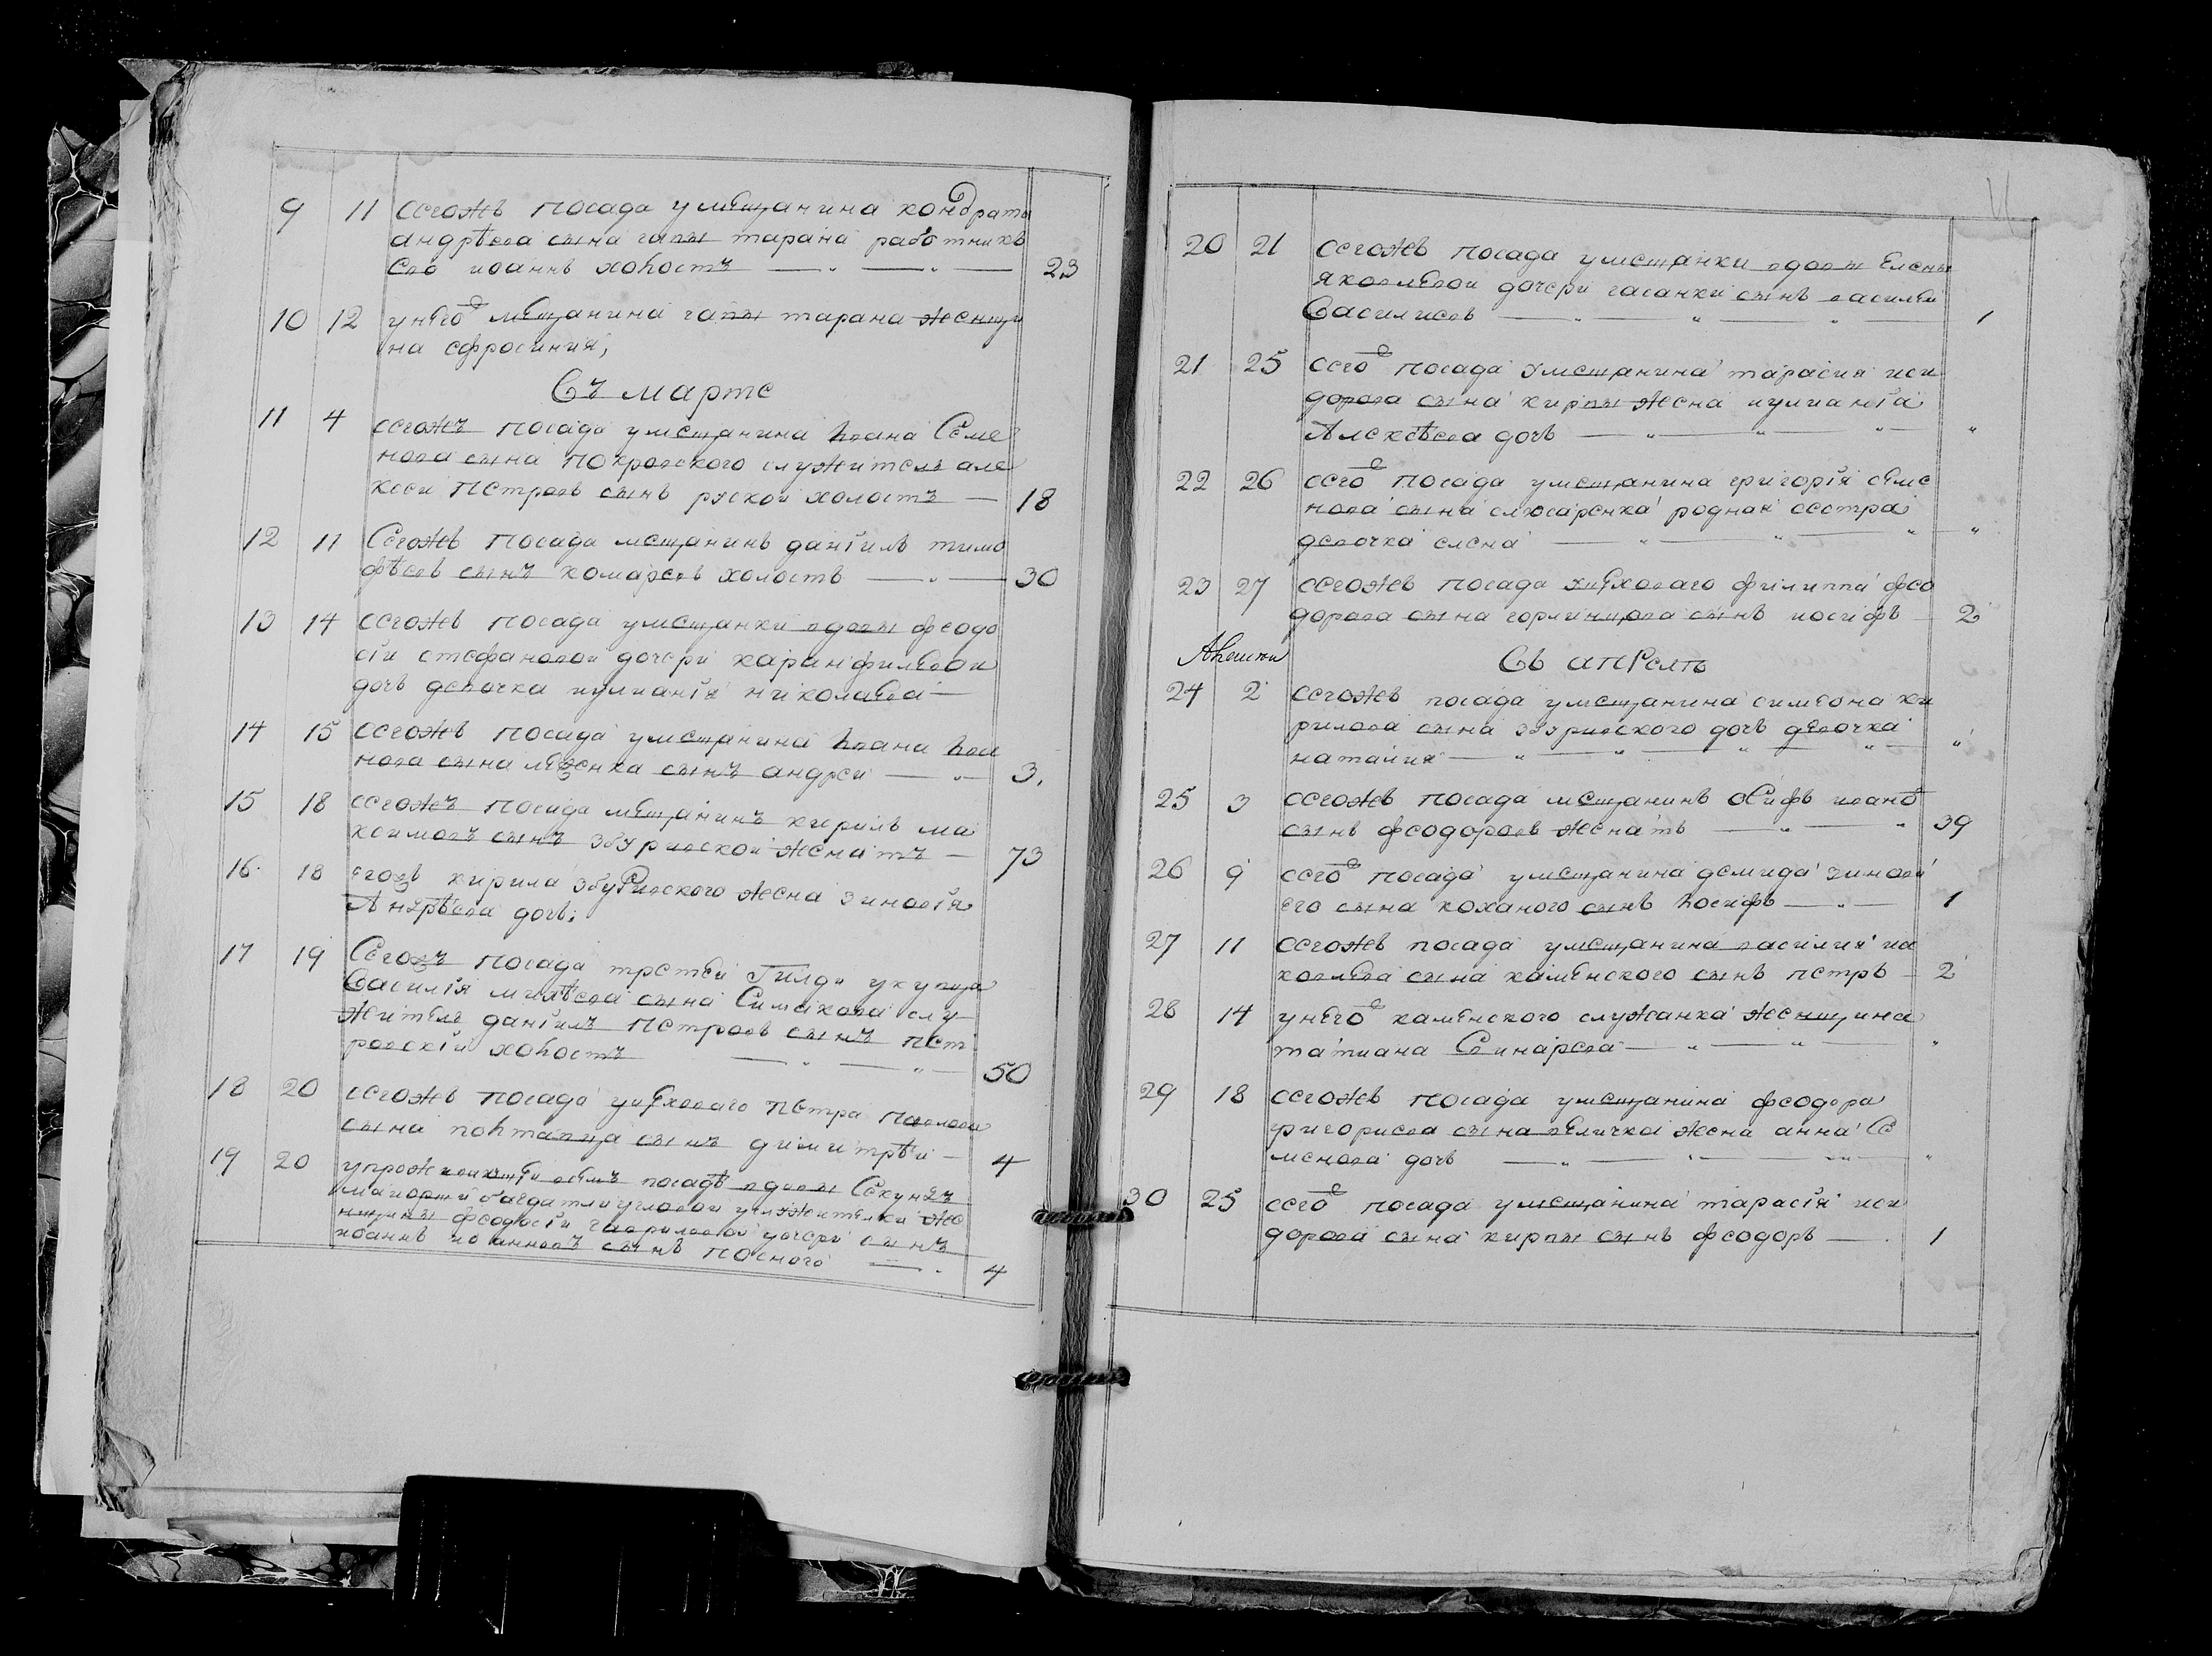 9 11 сегожъ посада умѣщанина кондрата
андрѣева сына гапы тарана работникъ
его иоаннъ холостъ — „ — „ — 23
10 12 унѣго мѣщанина гапы тарана женщи
на ефросиния,
Въ марте
11 4 сегожъ посада умещанина Іоана Семе
нова сына покровского служитель але
ксеи петровъ сынъ руской холостъ — 18
12 11 Сегожъ посада мещанинъ даніилъ тимо
фѣевъ сынъ комаревъ холостъ — „ — 30
13 14 сегожъ посада умещанки вдовы феодо
сіи стефановой дочери
дочь девочка иулианія николаева —
14 15 сегожъ посада умещанина Іоана
нова сына сынъ андреи — „ — 3.
15 18 сегожъ посада мѣщанинъ кирилъ ма
ксимовъ сынъ збуриевской женатъ — 73
16. 18 егожъ кирила збуриевского жена зиновія
Андрѣева дочь;
17 19 Сегожъ посада третьей Гилди укупца
Василія сына Симакова слу
житель даніилъ петровъ сынъ пет
ровскій холостъ — „ — „ — 50
18 20 сегожъ посада уцѣховаго петра павлова
сына полтавца сынъ димитрѣи — 4
19 20 посадѣ вдовы Секунъдъ
маиорши
феодосіи гавриловой дочери сынъ
иоаннъ иоанновъ сынъ посного — . 4
20 21 сегожъ посада умещанки вдовы Елены
яковлѣвой дочери гасанки сынъ василѣи
Василиевъ — „ — „ — „ — 1
21 25 сего посада умещанина тарасия иси
дорова сына кирпы жена иулианіа
Алексѣева дочь — „ — „ — „ — „
22 26 сего посада умещанина григорія сѣме
нова сына слюсаренка родная сестра
девочка елена — „ — „ — „ — „
23 27 сегожъ посада уцѣховаго филиппа фео
дорова сына горлинщова сынъ иосифъ — 2
Въ апрелѣ
24 2 сегожъ посада умещанина симѣона ки
рилова сына збуриевского дочь дѣвочка
наталия — „ — „ — „ — „ — „
25 3 сегожъ посада мещанинъ осифъ
сынъ феодоровъ женатъ — „ — „ 39
26 9 сего посада умещанина демида зиновѣ
его сына коханого сынъ Іосифъ — „ — 1
27 11 сегожъ посада умещанина василия иа
ковлѣва сына камѣнского сынъ петръ — 2
28 14 унѣго камѣнского служанка женщина
татиана Свинарева — „ — „ — „
29 18 сегожъ посада умещанина феодора
григориева сына вѣличка жена анна Се
менова дочь — „ — „ — „ — „
30 25 сего посада умещанина тарасія иси
дорова сына кирпы сынъ феодоръ — . 1